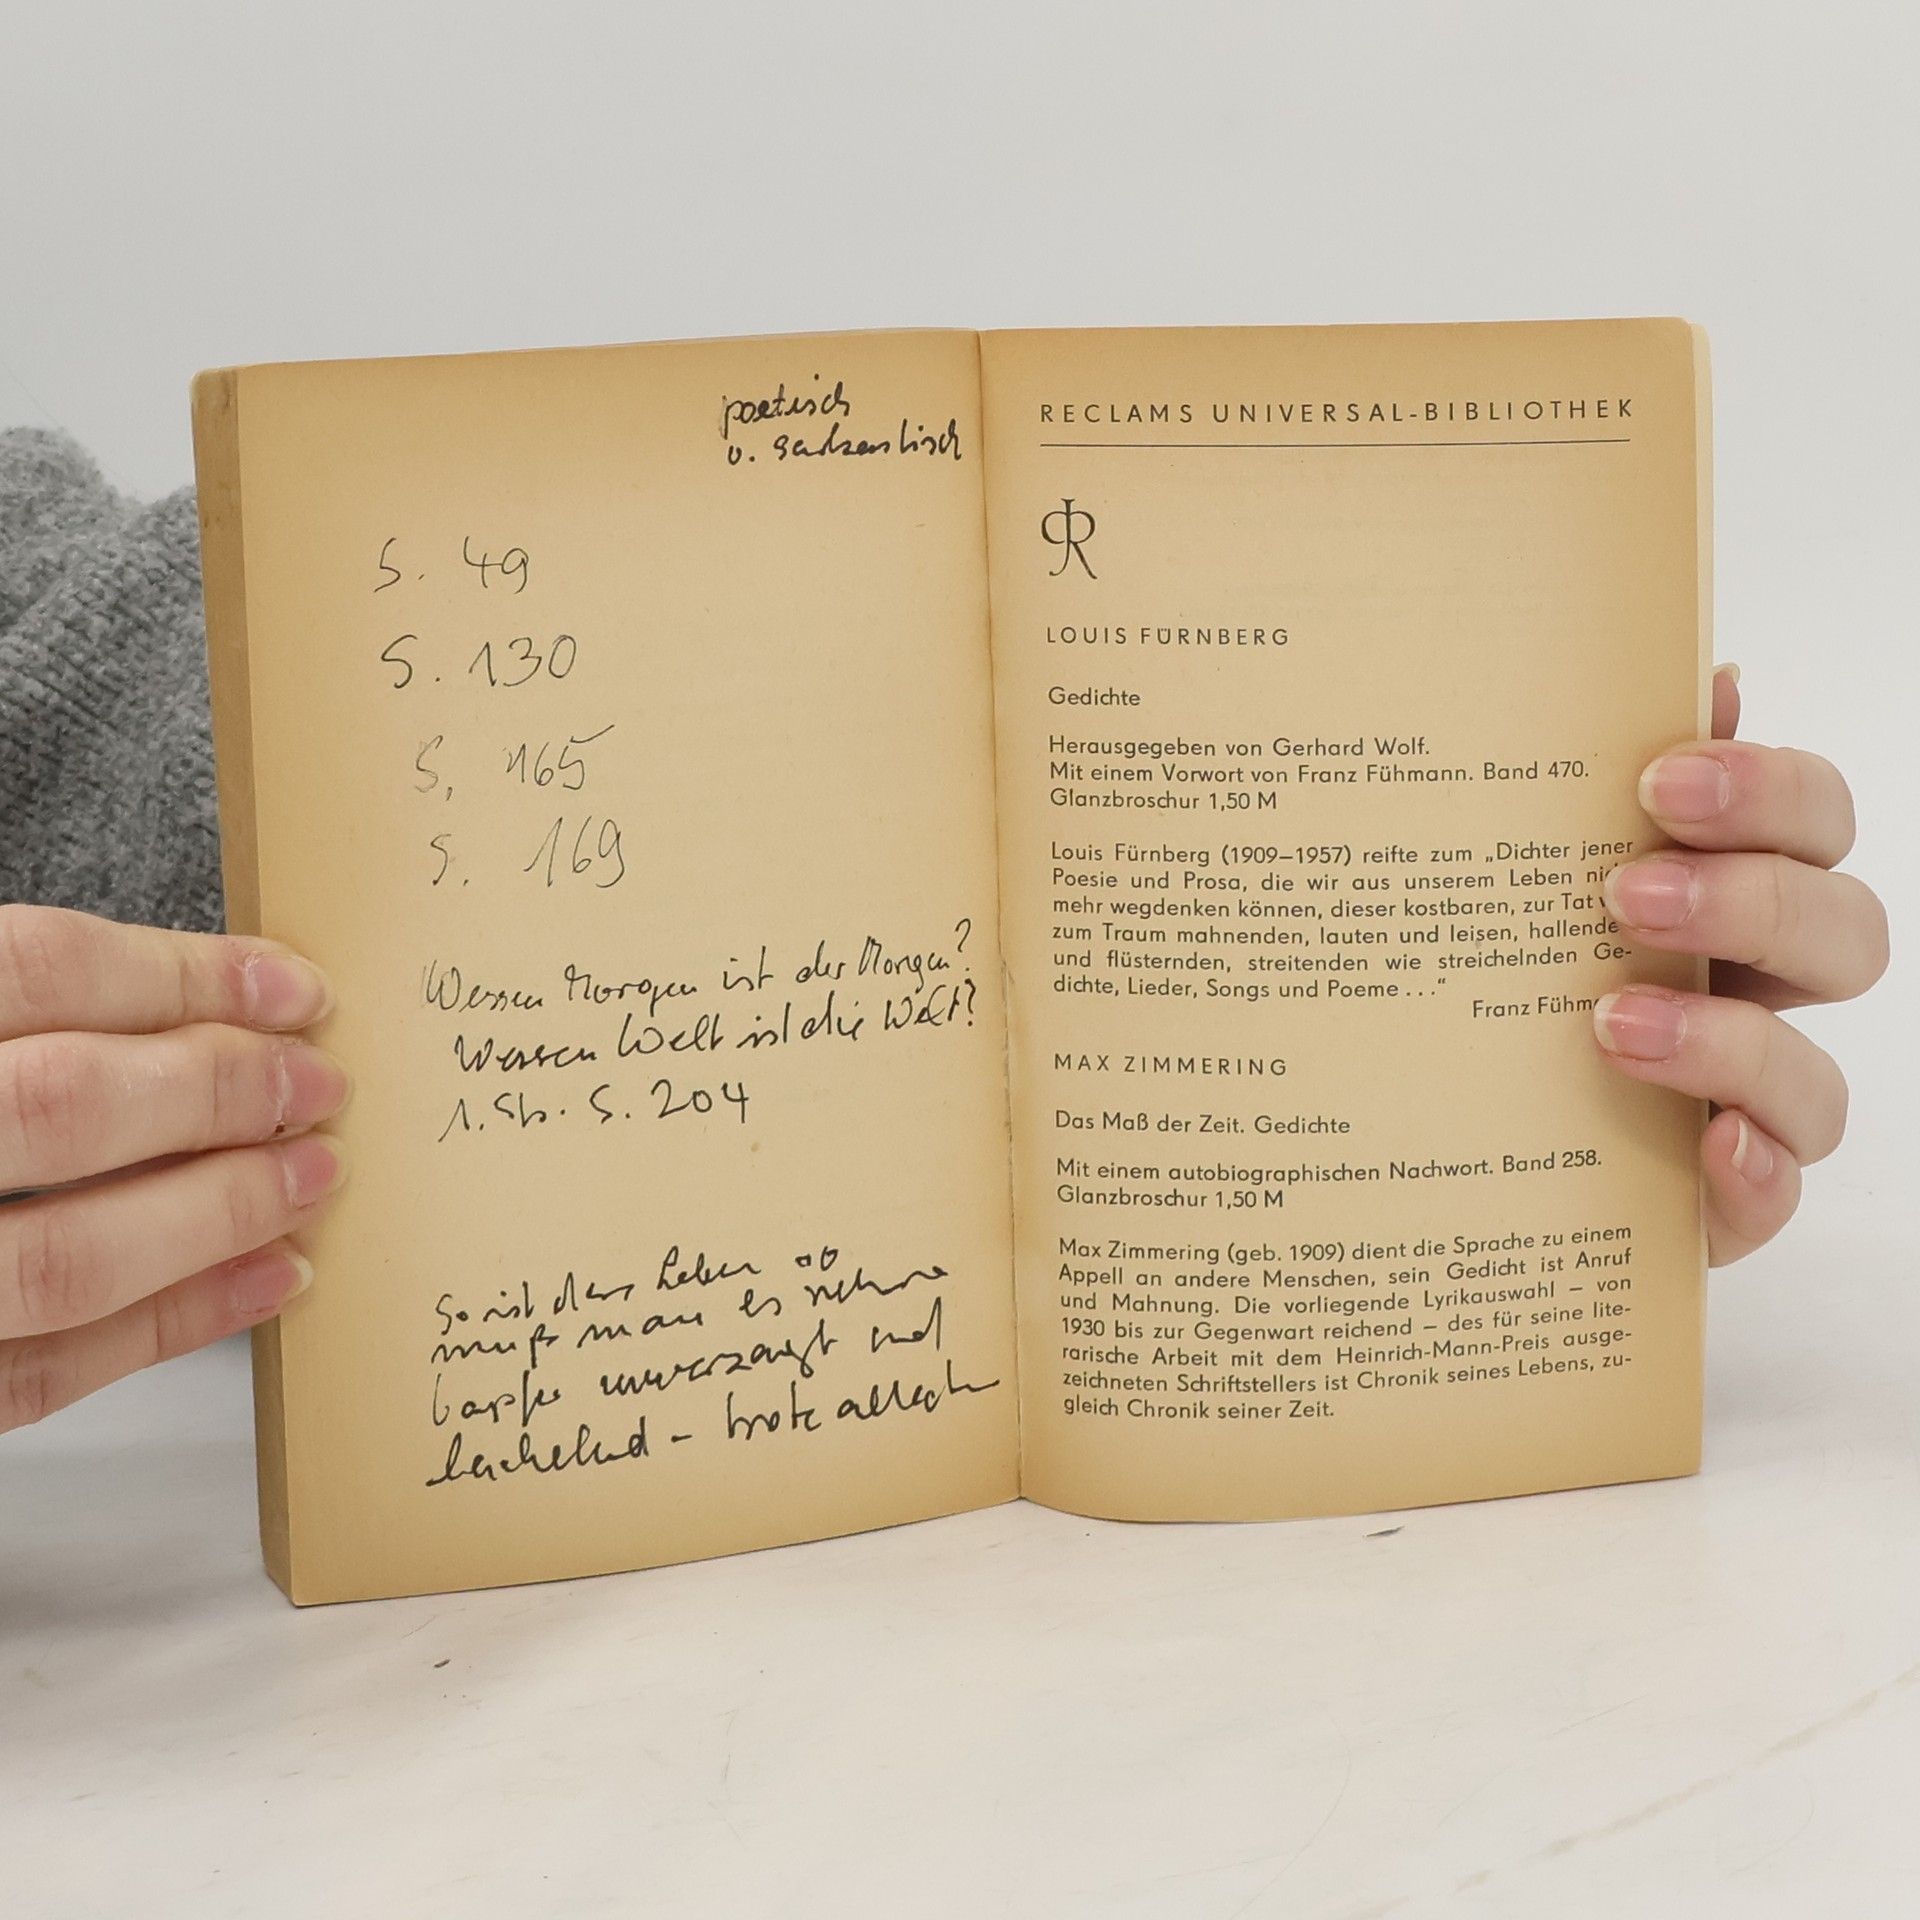 poetisch
u. sarkastisch
S. 49
S. 130
S. 165
S. 169
Wessen Morgen ist der Morgen?
Wessen Welt ist die Welt?
1. Str. S. 204
So ist das Leben
muß man es nehmen
tapfer unverzagt und
lächelnd – trotz alledem
RECLAMS UNIVERSAL-BIBLIOTHEK
LOUIS FÜRNBERG
Gedichte
Herausgegeben von Gerhard Wolf.
Mit einem Vorwort von Franz Fühmann. Band 470.
Glanzbroschur 1,50 M
Louis Fürnberg (1909–1957) reifte zum „Dichter jener
Poesie und Prosa, die wir aus unserem Leben
mehr wegdenken können, dieser kostbaren, zur Tat
zum Traum mahnenden, lauten und leisen, hallende
und flüsternden, streitenden wie streichelnden Ge-
dichte, Lieder, Songs und Poeme . . .“
Franz Fühm
MAX ZIMMERING
Das Maß der Zeit. Gedichte
Mit einem autobiographischen Nachwort. Band 258.
Glanzbroschur 1,50 M
Max Zimmering (geb. 1909) dient die Sprache zu einem
Appell an andere Menschen, sein Gedicht ist Anruf
und Mahnung. Die vorliegende Lyrikauswahl – von
1930 bis zur Gegenwart reichend – des für seine lite-
rarische Arbeit mit dem Heinrich-Mann-Preis ausge-
zeichneten Schriftstellers ist Chronik seines Lebens, zu-
gleich Chronik seiner Zeit.